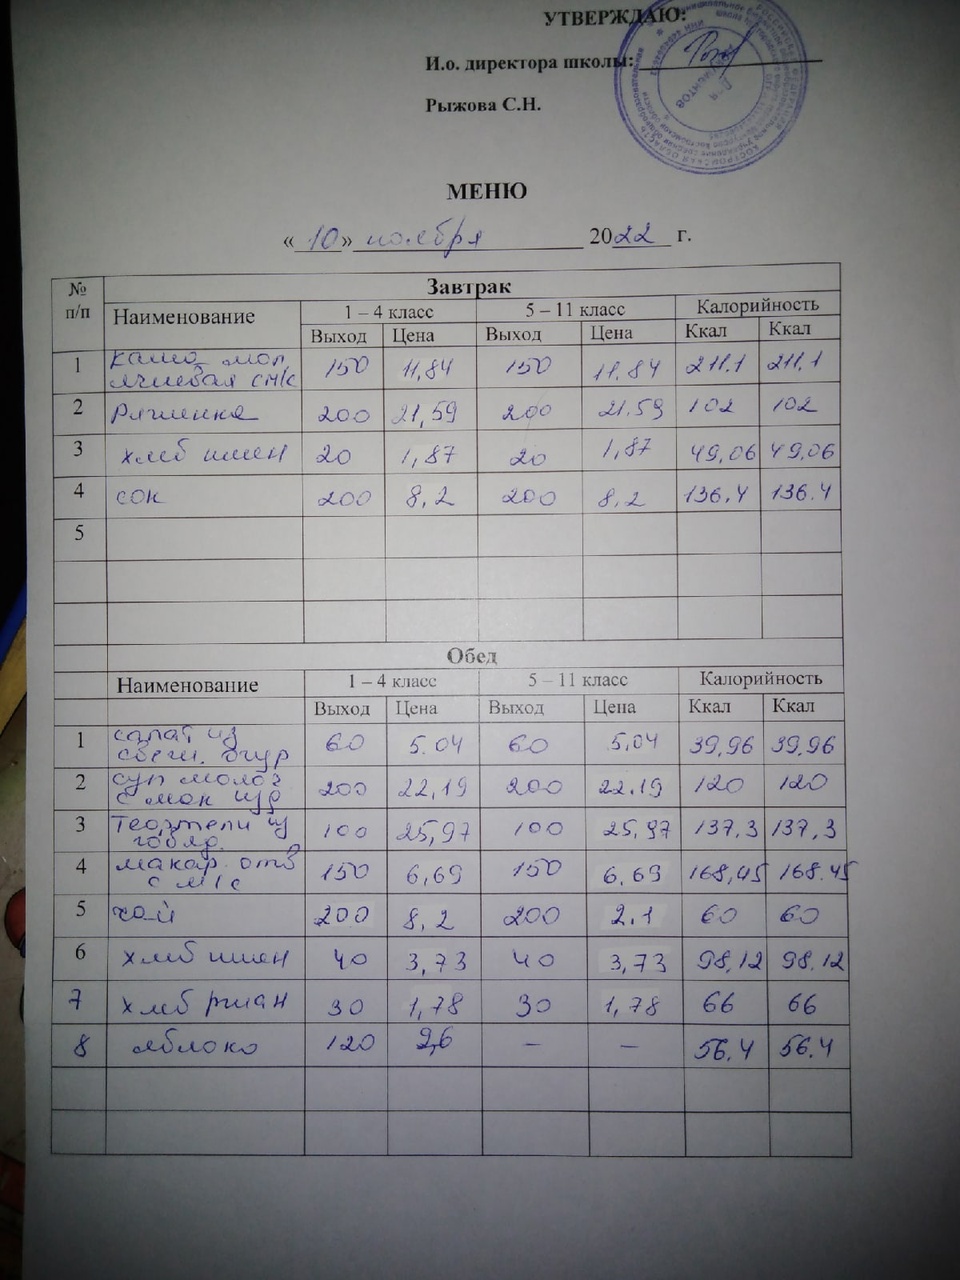 УТВЕРЖДАЮ:
И.о. директора школы:
Рыжова С.Н.
МЕНЮ
«10» ноября 2022 г.
№ п/п Завтрак
Наименование 1 – 4 класс 5 – 11 класс Калорийность
Выход Цена Выход Цена Ккал Ккал
1 каша мол ячневая с м/с 150 11,84 150 11.84 211.1 211,1
2 Ряженка 200 21,59 200 21.59 102 102
3 хлеб пшен 20 1,87 20 1,87 49,06 49,06
4 сок 200 8,2 200 8,2 136,4 136.4
5
Обед
Наименование 1 – 4 класс 5 – 11 класс Калорийность
Выход Цена Выход Цена Ккал Ккал
1 салат из свеж. огур 60 5.04 60 5,04 39,96 39,96
2 суп молоч с мак изд 200 22,19 200 22.19 120 120
3 Тефтели из 100 25,97 100 25,97 137,3 137,3
4 макар. отв с м/с 150 6,69 150 6,69 168,45 168.45
5 чай 200 8,2 200 2.1 60 60
6 хлеб пшен 40 3,73 40 3,73 98,12 98.12
7 хлеб ржан 30 1,78 30 1,78 66 66
8 яблоко 120 — — 56,4 56.4